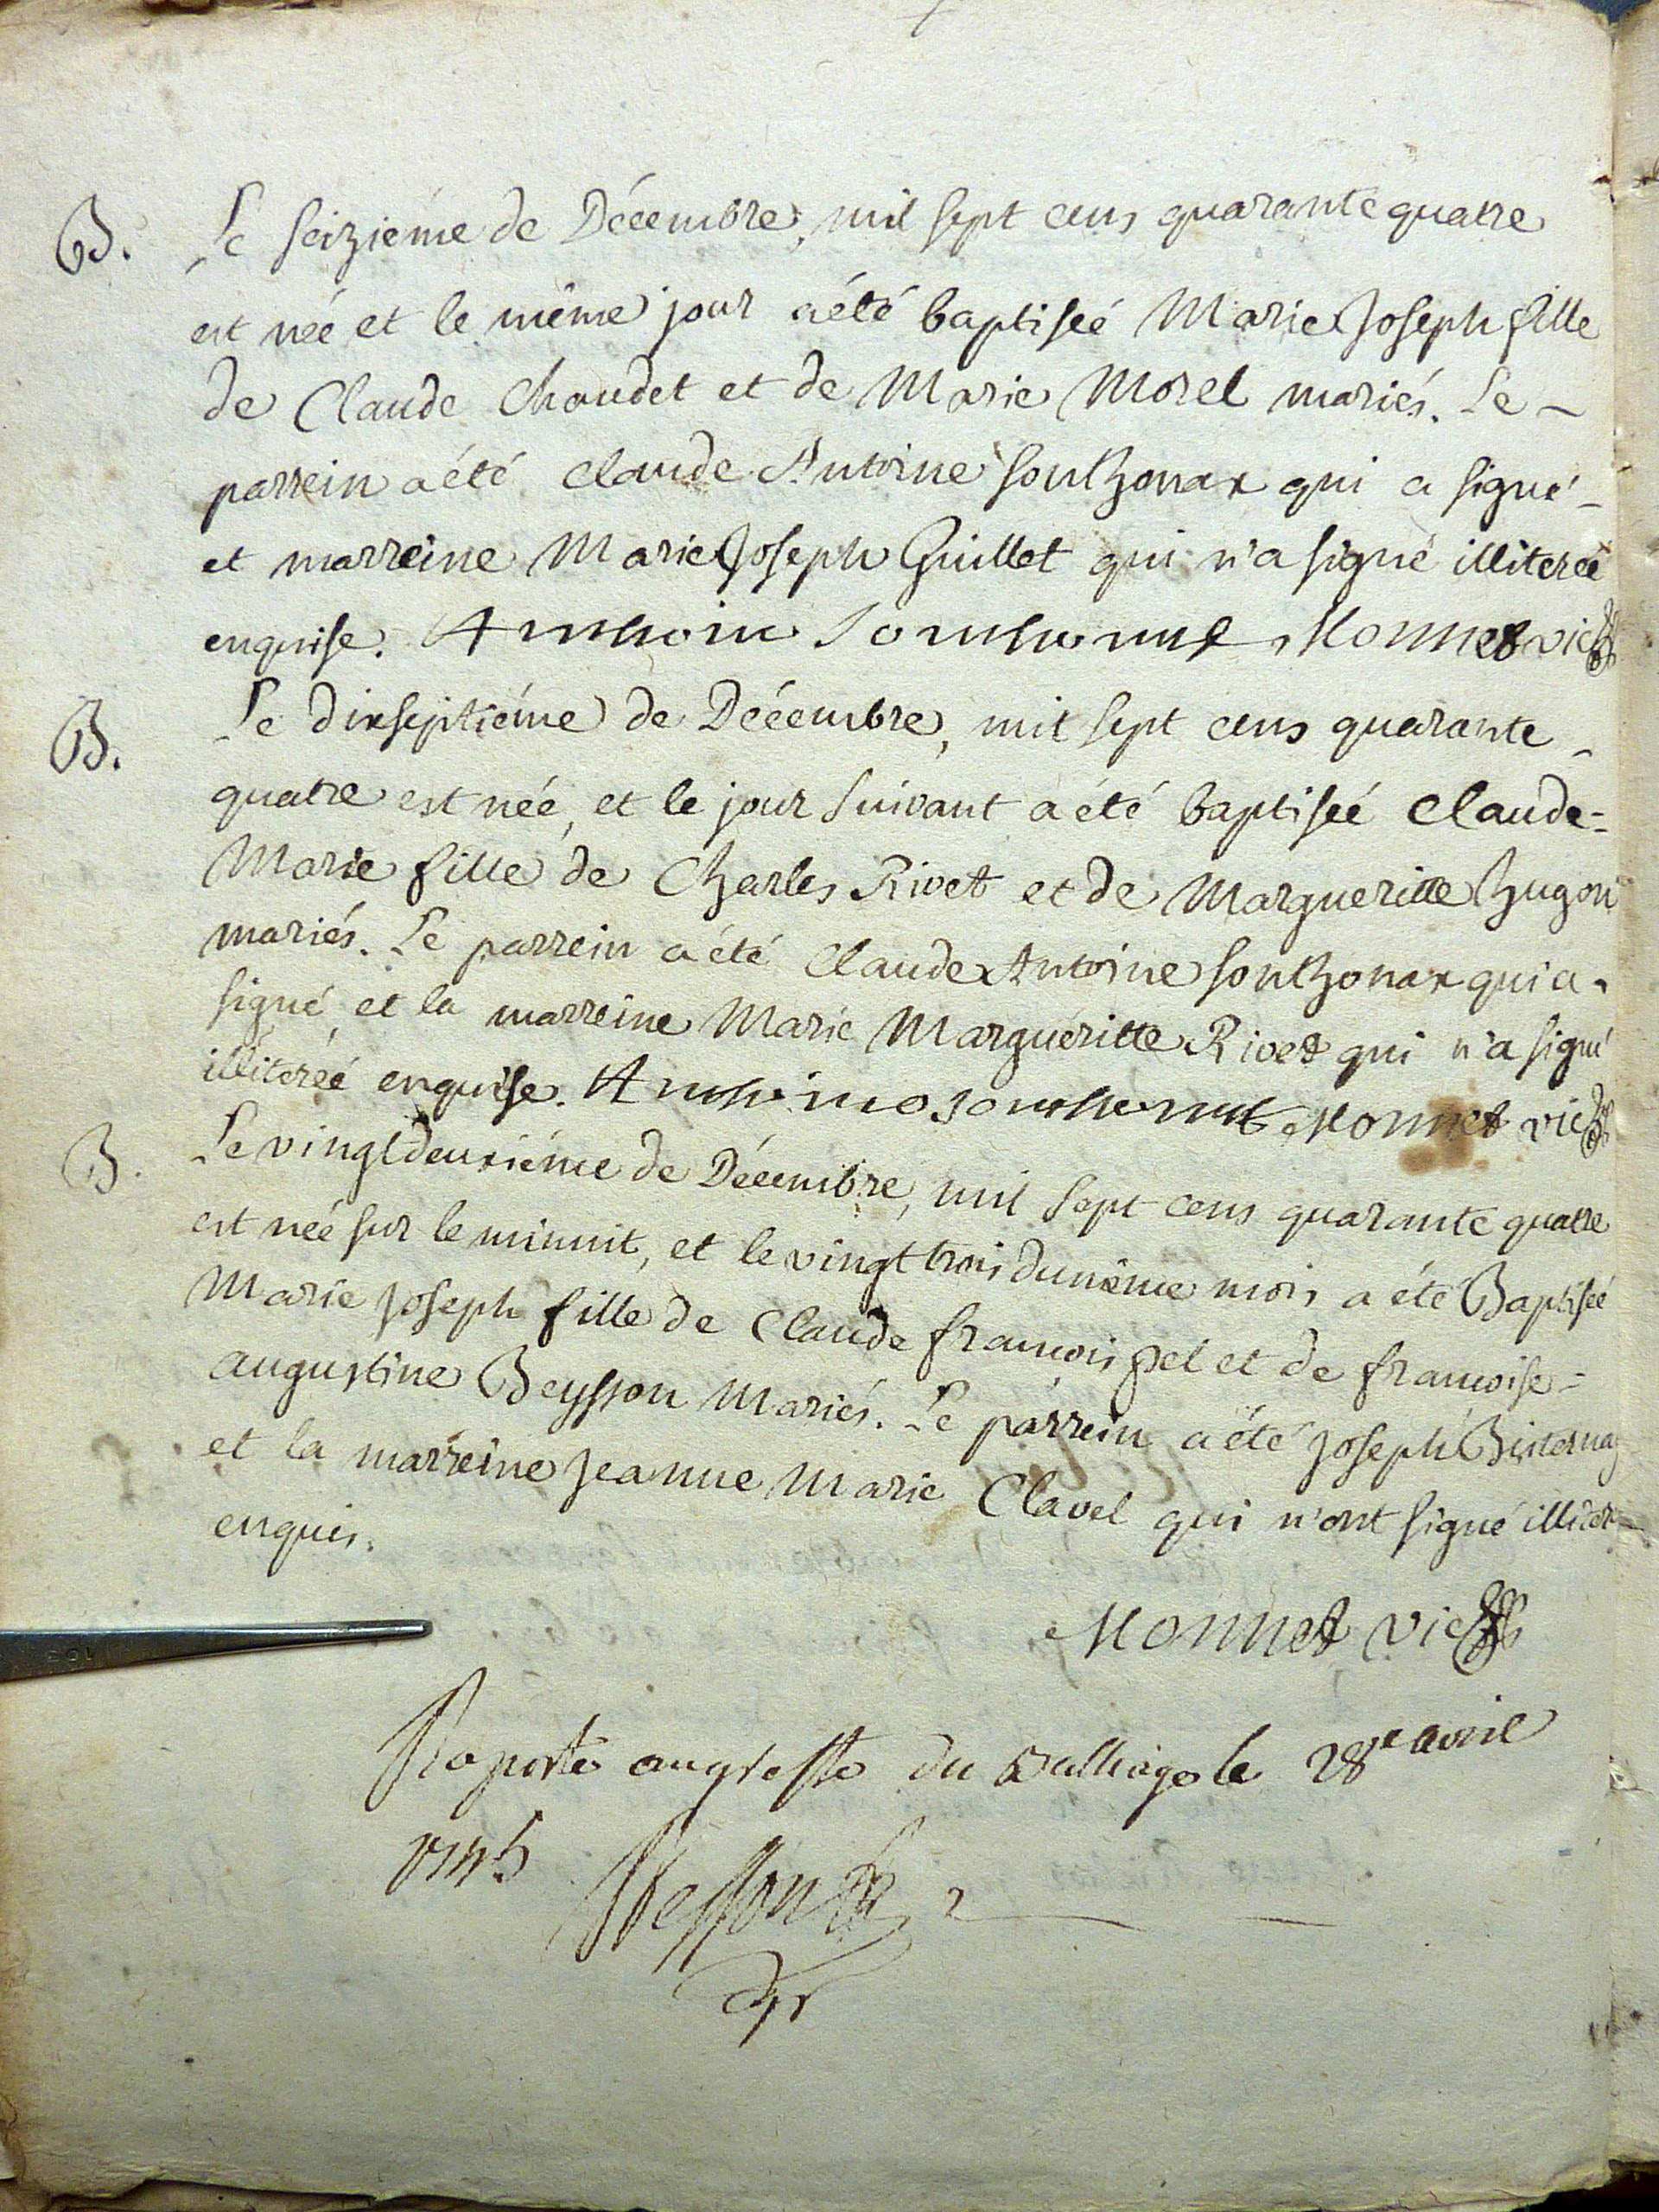 B. Le seizième de Décembre, mil sept cens quarante quatre
est née et le même jour a été baptisée Marie Joseph fille
de Claude Chaudet et de Marie Morel mariés. Le
parrein a été Claude Antoine Sonthonax qui a signé
et marreine Marie Joseph Guillet qui n'a signé illiterée
enquise. Monnet vic
B. Le dixseptiéme de Décembre, mil sept cens quarante
quatre est née, et le jour suivant a été baptisée Claude=
Marie fille de Charles Rivet et de Margueritte hugon
mariés. Le parrein a été Claude Antoine Sonthonax qui a
signé et la marreine Marie Marguéritte Rivet qui n'a signé
illiterée enquise. Monnet vic
B. Le vingtdeuxiéme de Décembre, mil sept cens quarante quatre
est née sur le minuit, et le vingt trois du même mois a été Baptisée
Marie Joseph fille de Claude françois pel et de françoise=
augustine Beysson Mariés. Le parrein a été Joseph
et la marreine Jeanne Marie Clavel qui n'ont signé illiter
enquis.
Monnet vic
Raporté au greffe du Balliage le 28e avril
1745